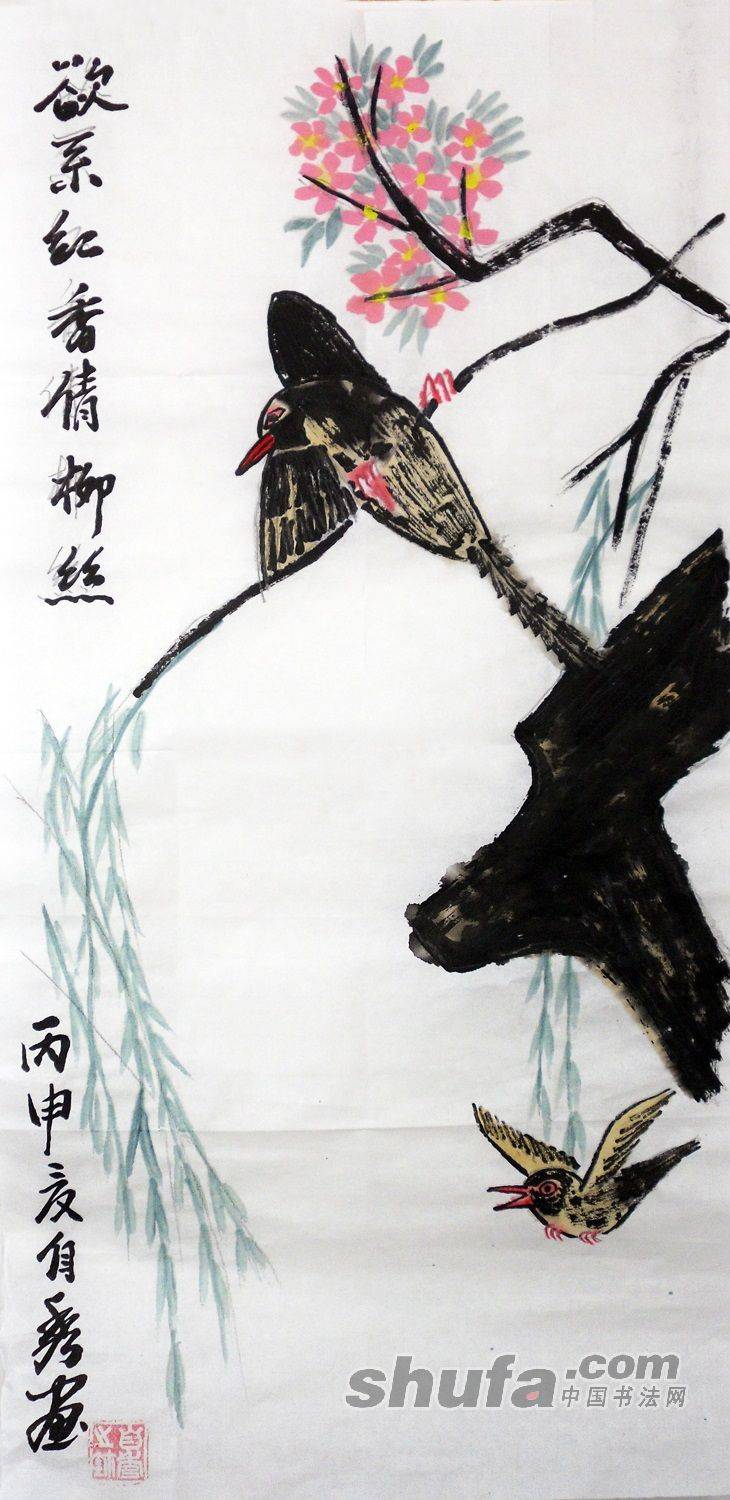 欲系红香倩柳丝
丙申夏自秀画
shufa.com
中国书法网